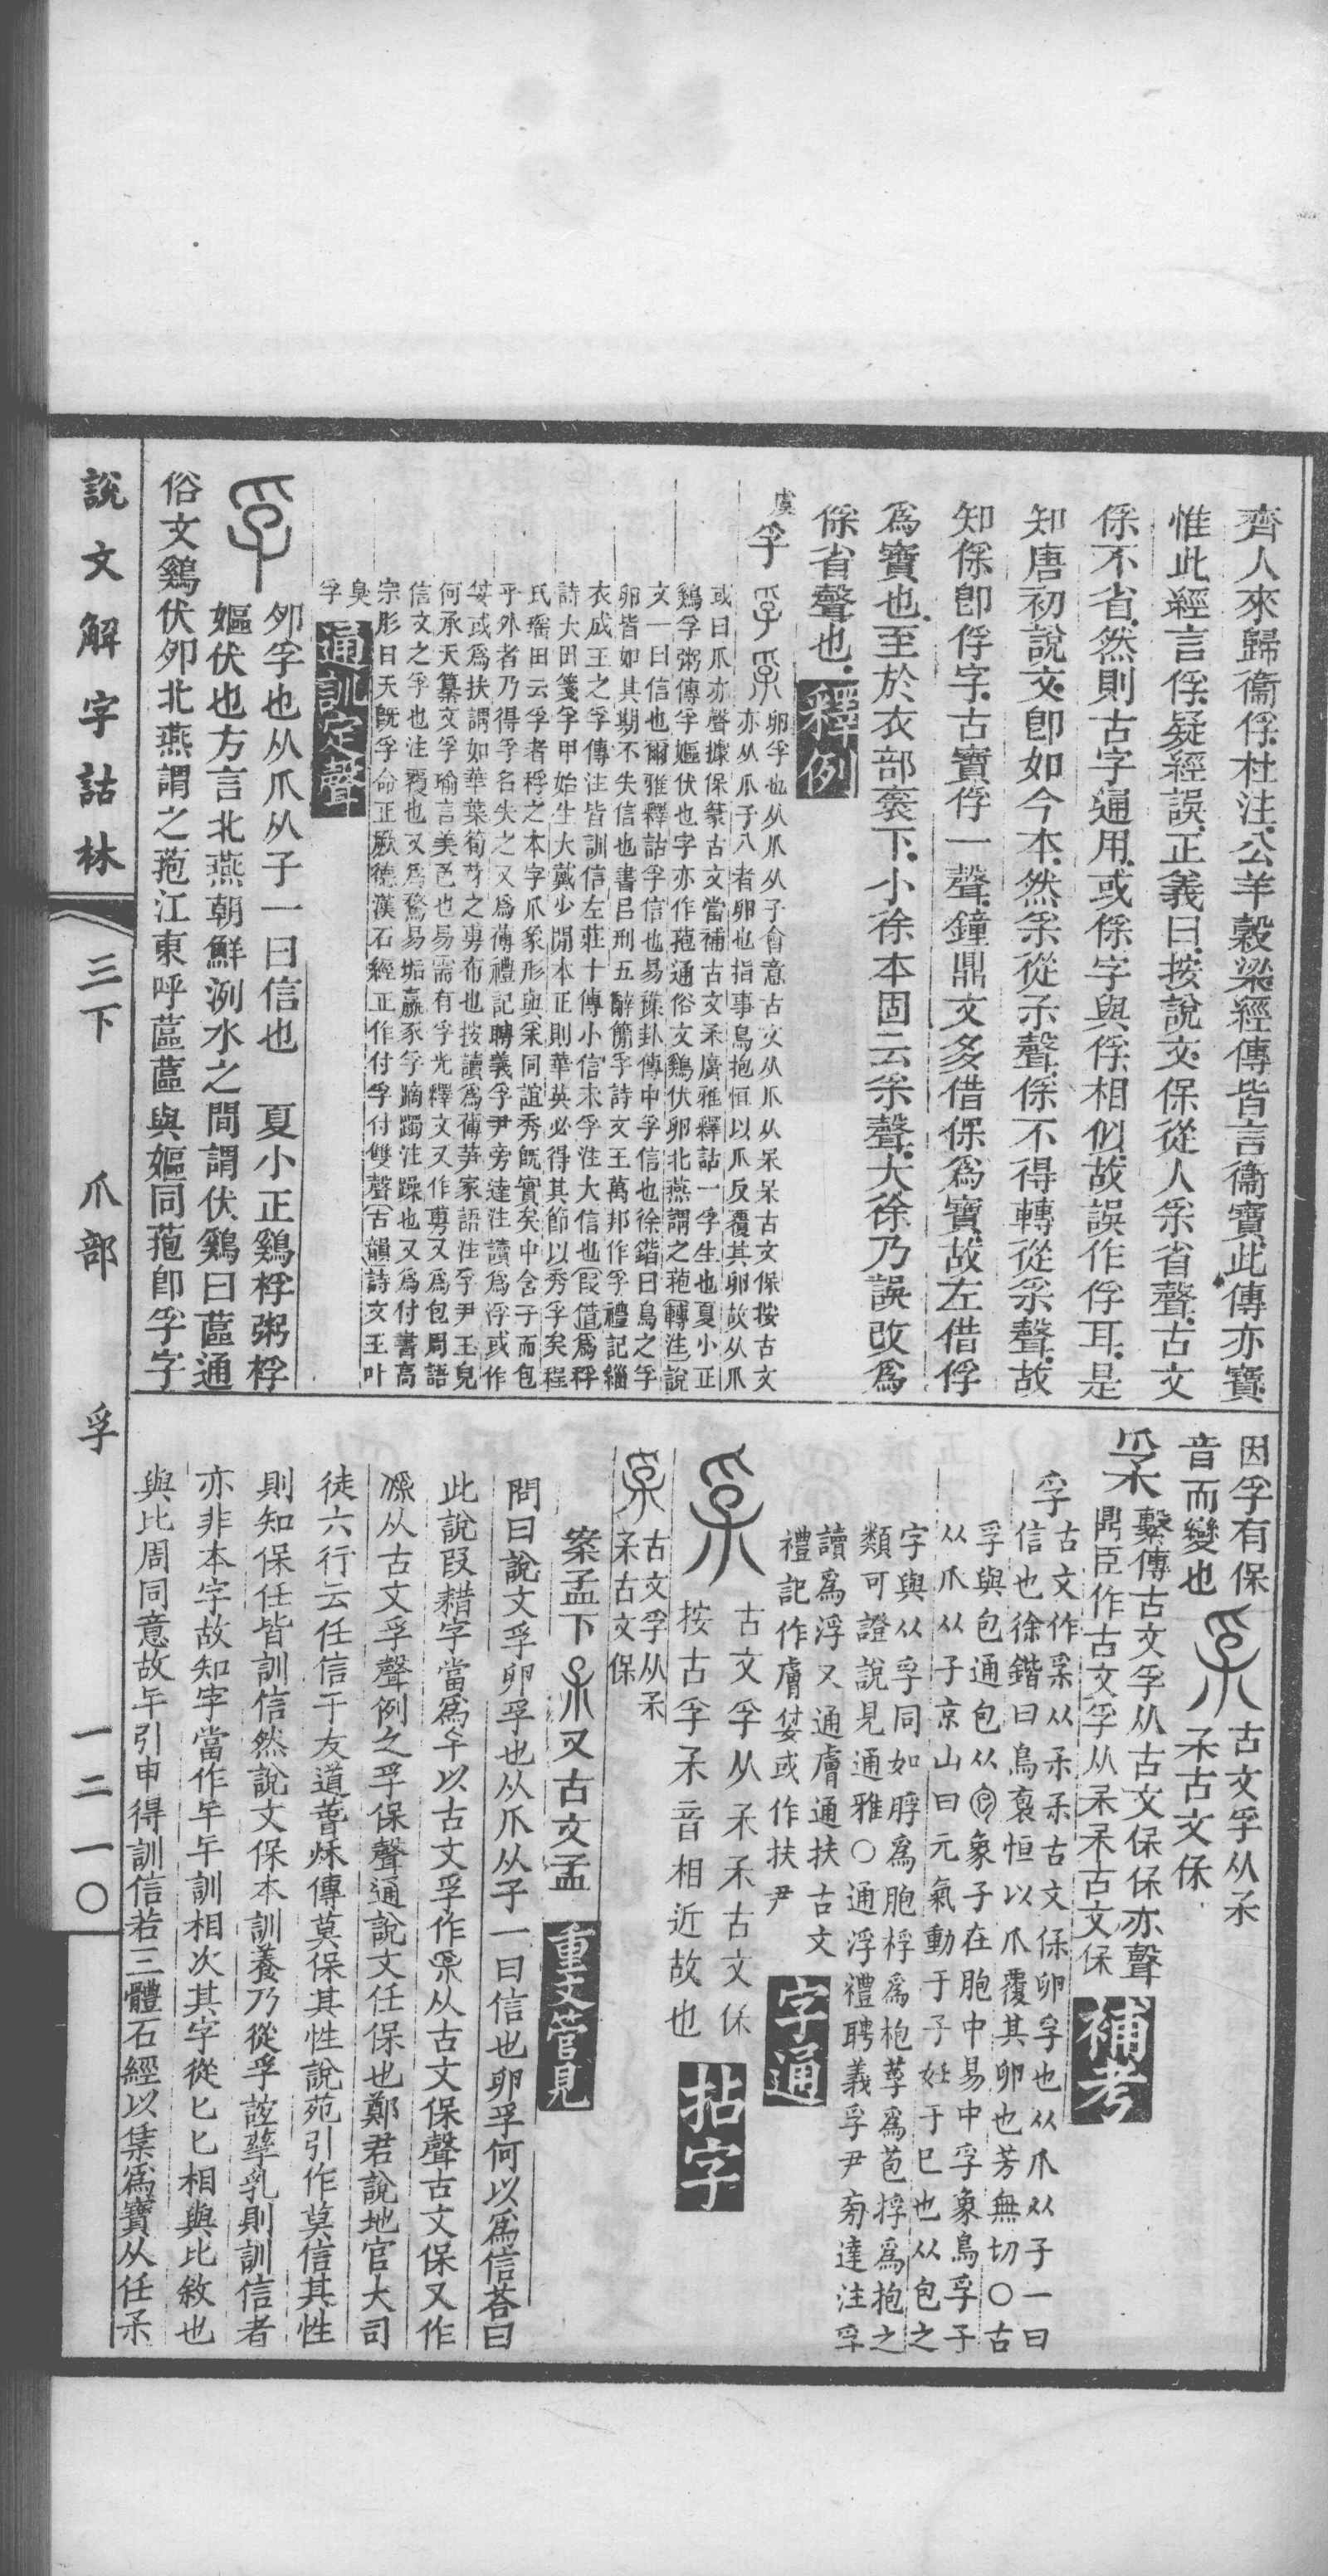 齊人來歸衞俘杜注公羊穀梁經傳皆言衞寶此傳亦寶
惟此經言俘疑經誤正義曰按說文保從人采省聲古文
保不省然則古字通用或保字與俘相似故誤作俘耳是
知唐初說文卽如今本然采從𤓽聲保不得轉從采聲故
知保卽俘字古寶俘一聲鐘鼎文多借保爲寶故左借俘
爲寶也至於衣部褒下小徐本固云采聲大徐乃誤改爲
保省聲也釋例
虞孚
卵孚也从爪从子會意古文从爪从呆呆古文保按古文
亦从爪子八者卵也指事鳥抱恒以爪反覆其卵故从爪
或曰爪亦聲據保篆古文當補古文禾廣雅釋詁一孚生也夏小正
鷄孚粥傳孚嫗伏也字亦作菢通俗文鷄伏卵北燕謂之菢轉注說
文一曰信也爾雅釋詁孚信也易雜卦傳中孚信也徐鍇曰鳥之孚
卵皆如其期不失信也書呂刑五辭簡孚詩文王萬邦作孚禮記緇
衣成王之孚傳注皆訓信左莊十傳小信未孚注大信也假借爲稃
詩大田箋孚甲始生大戴少閒本正則華英必得其節以秀孚矣程
氏瑤田云孚者稃之本字爪象形與采同誼秀既實矣中含子而包
乎外者乃得孚名失之又爲傅禮記聘義孚尹旁達注讀爲浮或作
𡜟或爲扶謂如華葉筍莩之尃布也按讀爲傅莩家語注孚尹玉皃
何承天纂文孚瑜言美色也易需有孚光釋文又作旉又爲包周語
信文之孚也注覆也又爲騖易垢羸豕孚蹢躅注躁也又爲付書高
宗肜日天旣孚命正厥德漢石經正作付孚付雙聲古韻詩文王叶
臭孚通訓定聲
孚卵孚也从爪从子一曰信也　夏小正鷄桴粥桴
嫗伏也方言北燕朝鮮洌水之閒謂伏鷄曰蓲通
俗文鷄伏卵北燕謂之菢江東呼蓲蓲與嫗同菢卽孚字
說文解字詁林　三下　爪部　孚　一二一〇
因孚有保
音而變也
古文孚从𤓽
𤓽古文保
繫傳古文孚从古文保保亦聲
鼎臣作古文孚从𤓽𤓽古文保補考
孚古文作采从禾禾古文保卵孚也从爪从子一曰
信也徐鍇曰鳥裒恒以爪覆其卵也芳無切〇古
孚與包通包从象子在胞中易中孚象鳥孚子
从爪从子京山曰元氣動于子妊于巳也从包之
字與从孚同如脬爲胞桴爲枹莩爲苞捊爲抱之
類可證說見通雅〇通浮禮聘義孚尹旁達注孚
讀爲浮又通膚通扶古文
禮記作膚𡜟或作扶尹字通
古文孚从禾禾古文保
按古孚禾音相近故也拈字
古文孚从禾
禾古文保
案孟下又古文孟重文管見
問曰說文孚卵孚也从爪从子一曰信也卵孚何以爲信荅曰
此說叚耤字當爲㐄以古文孚作采从古文保聲古文保又作
从古文孚聲例之孚保聲通說文任保也鄭君說地官大司
徒六行云任信于友道蒈𥞊傳莫保其性說苑引作莫信其性
則知保任皆訓信然說文保本訓養乃從孚該孳乳則訓信者
亦非本字故知字當作㐄㐄訓相次其字從匕匕相與比敘也
與比周同意故㐄引申得訓信若三體石經以集爲寶从任禾